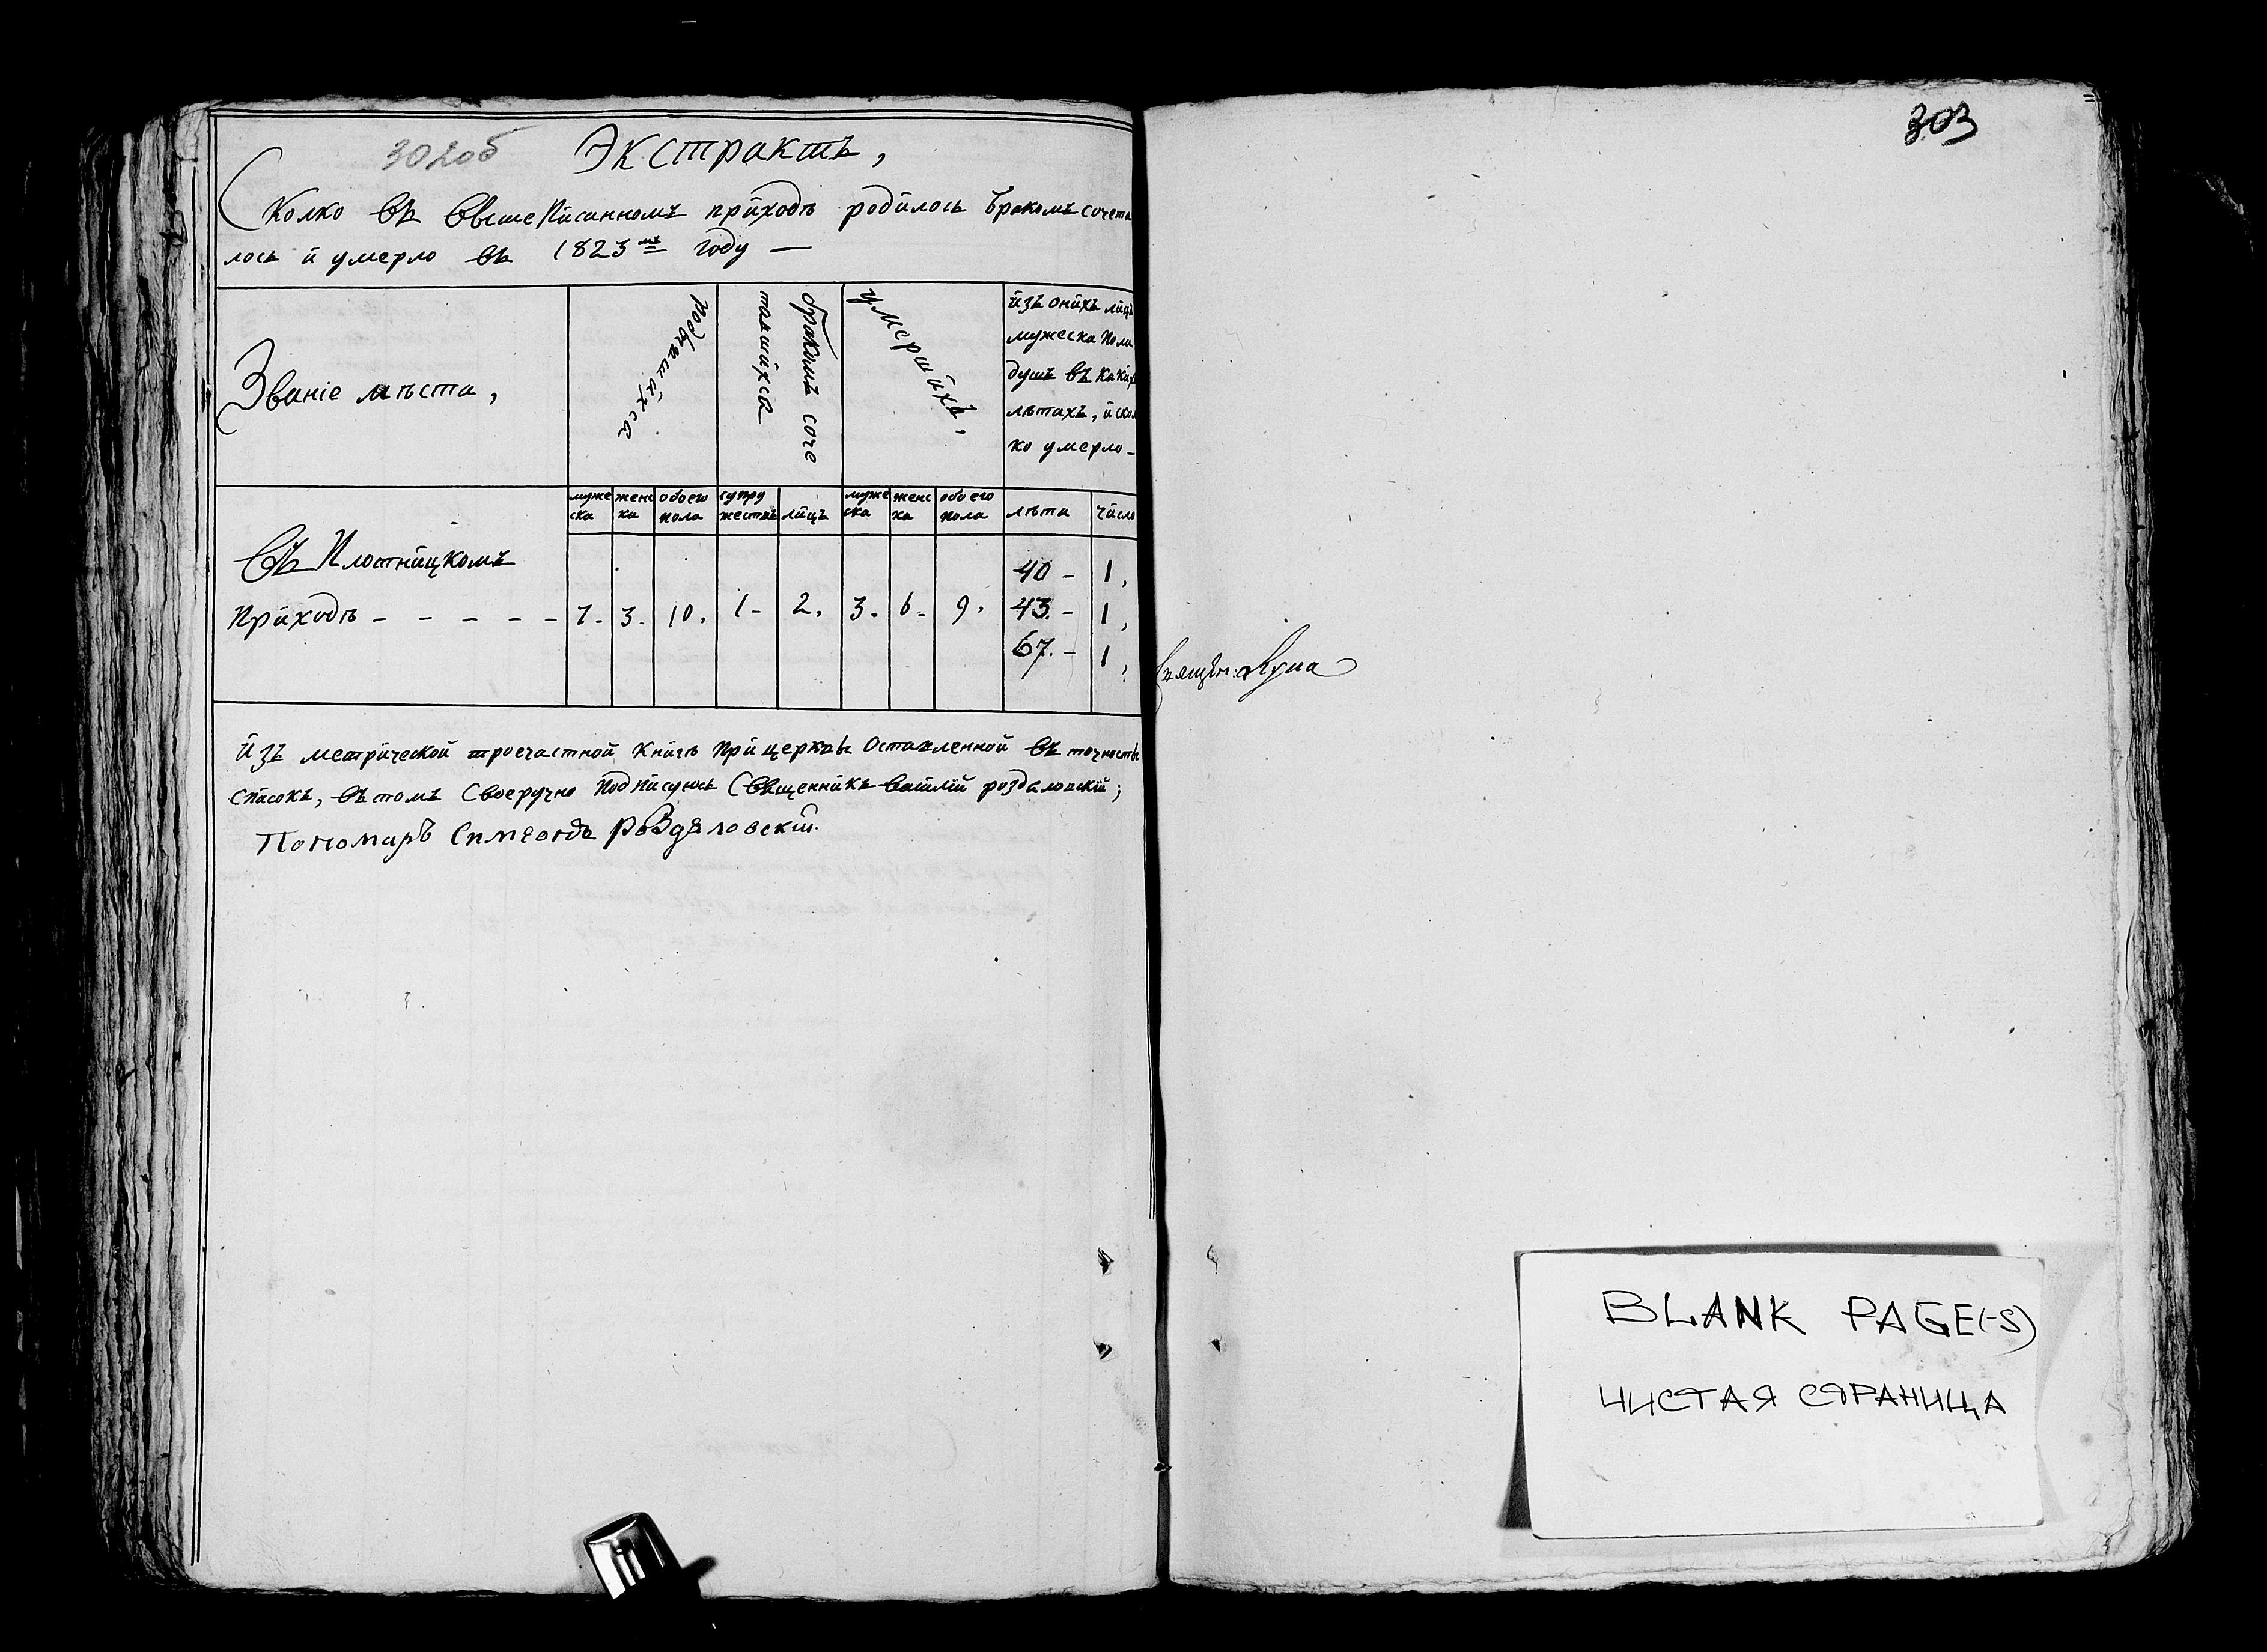 302об
Экстрактъ,
Сколко въ вышеписанномъ приходѣ родилось бракомъ сочета
лось и умерло въ 1823мъ году —
Званіе мѣста,
родившихса
бракомъ соче
тавшихса
умершихъ,
изъ онихъ лицъ
мужеска пола
душъ въ какихъ
лѣтахъ, и скол
ко умерло –
муже
ска
женс
ка
обоего
пола
супру
жествъ
лицъ
муже
ска
женс
ка
обоего
пола
лѣта
число
Въ Плотницкомъ
Приходѣ – – – – –
7. 3. 10. 1. 2. 3. 6. 9.
40 – 1,
43. – 1,
67. – 1,
Изъ метрической троечастной книги при церкви оставленной въ точность
списокъ, въ томъ своеручно подписуюсь Священникъ Василій роздаловскій;
Пономаръ Симеонъ Роздаловскій.
303
BLANK PAGE(-S)
ЧИСТАЯ СТРАНИЦА